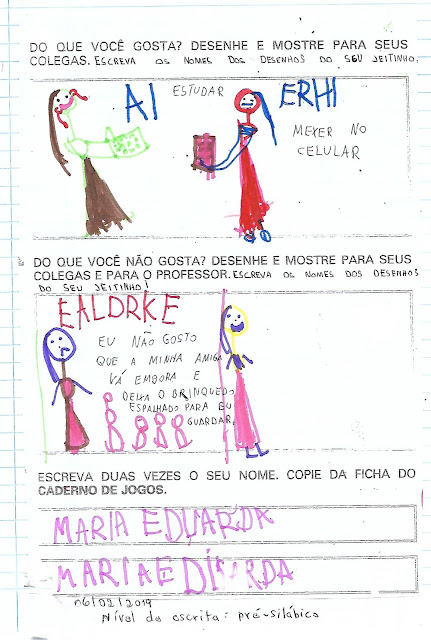 DO QUE VOCÊ GOSTA? DESENHE E MOSTRE PARA SEUS
COLEGAS. ESCREVA OS NOMES DOS DESENHOS DO SEU JEITINHO.
AI
ESTUDAR
ERHI
MEXER NO
CELULAR
DO QUE VOCÊ NÃO GOSTA? DESENHE E MOSTRE PARA SEUS
COLEGAS E PARA O PROFESSOR. ESCREVA OS NOMES DOS DESENHOS
DO SEU JEITINHO!
EALDRKE
EU NÃO GOSTO
QUE A MINHA AMIGA
VÁ EMBORA E
DEIXA O BRINQUEDO
ESPALHADO PARA EU
GUARDAR.
ESCREVA DUAS VEZES O SEU NOME. COPIE DA FICHA DO
CADERNO DE JOGOS.
MARIA EDUARDA
MARIA
06/02/2019
Nível de escrita: pré-silábico